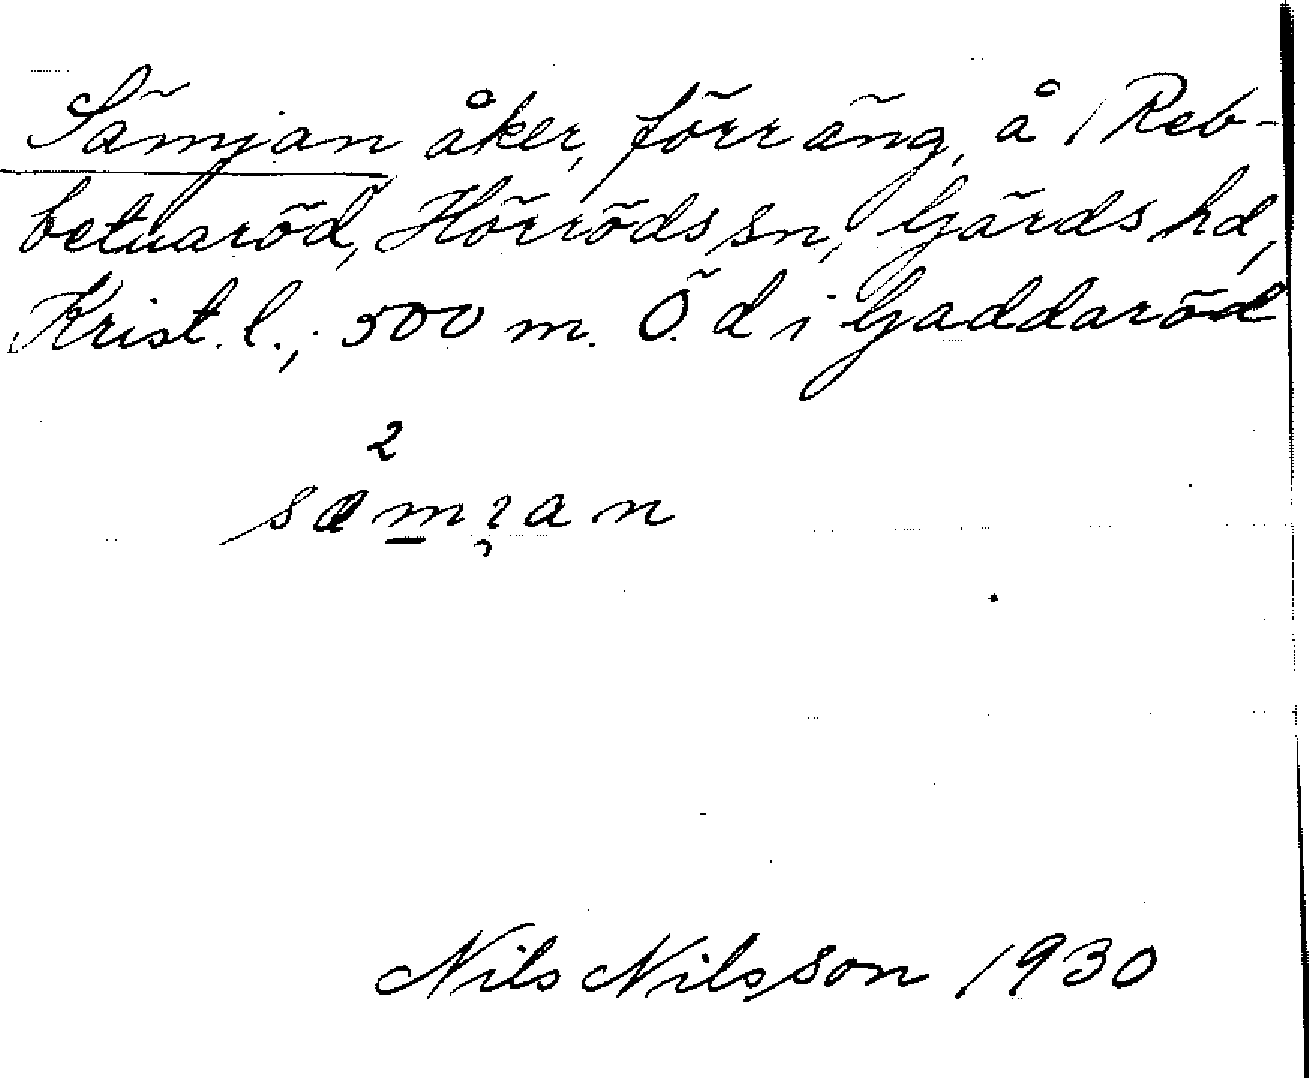 Sämjan åker, förr äng, å 1 Reb-
betuaröd, Hörröds sn, Gärds hd,
Krist. l.; 500 m. Ö. d i Gaddaröd
2
Nils Nilsson 1930